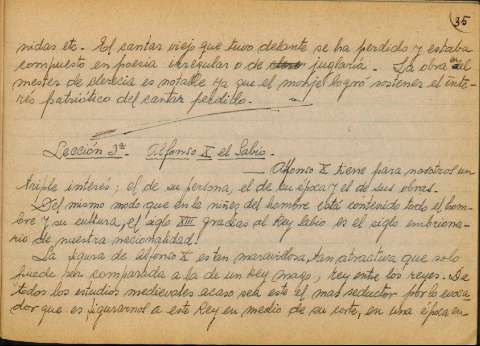 35
nidas etc. El cantar viejo que tuvo delante se ha perdido y estaba
compuesto en poesia irregular o de juglaria. La obra del
mester de clerecia es notable ya que el monje logró sostener el inte-
rés patriótico del cantar perdido.
Lección 3ª. Alfonso X el Sabio.
Alfonso X tiene para nosotros un
triple interés; el de su persona, el de su época y el de sus obras.
Del mismo modo que en la niñez del hombre está contenido todo el hom-
bre y su cultura, el siglo XIII gracias al Rey Sabio es el siglo embriona-
rio de nuestra nacionalidad!
La figura de Alfonso X es tan maravillosa, tan atractiva que solo
puede ser comparada a la de un Rey Mago, Rey entre los reyes. De
todos los estudios medievales acaso sea este el mas seductor por lo evoca-
dor que es figurarnos a este Rey en medio de su corte, en una época en